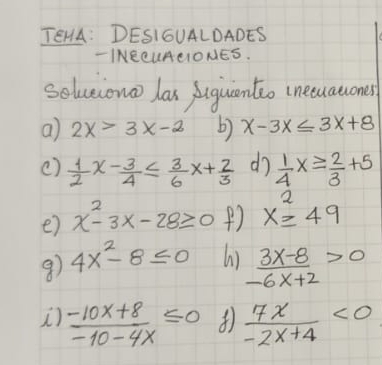 TEMA: DESIGUALDADES
-INECUACIONES.
Soluciona las siguientes inecuaciones:
a) 2x > 3x-2 b) x-3x ≤ 3x+8
c) 1/2 x - 3/4 ≤ 3/6 x + 2/3 d) 1/4 x ≥ 2/3 + 5
e) x² - 3x - 28 ≥ 0 f) x² ≥ 49
g) 4x² - 8 ≤ 0 h) (3x-8)/(-6x+2) > 0
i) (-10x+8)/(-10-4x) ≤ 0 j) 7x/(-2x+4) < 0